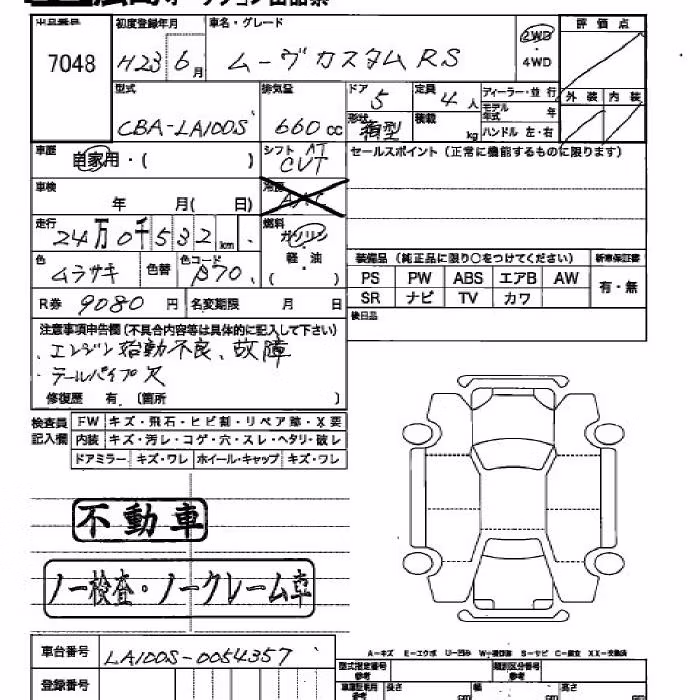 出品番号 初度登録年月 車名・グレード 2WD 評価点
7048 H23年6月 ムーヴカスタムRS ・4WD
型式 排気量 ドア 定員 ディーラー・並行 外装 内装
CBA-LA100S 660cc 5 4人 モデル年式 年
形状 箱型 積載 kg ハンドル 左・右
車歴 自家用・( ) シフト AT CVT セールスポイント (正常に機能するものに限ります)
車検 年 月( 日) 冷房 AAC
走行 24万0千532km 燃料 ガソリン
色 ムラサキ 色替 色コード P70 軽油 ( ) 装備品 (純正品に限り○をつけてください) 新車保証書
PS PW ABS エアB AW 有・無
R券 9080円 名変期限 月 日 SR ナビ TV カワ
後日品
注意事項申告欄 (不具合内容等は具体的に記入して下さい)
、エンジン始動不良、故障
・テールパイプ欠
修復歴 有.〔箇所 〕
検査員記入欄 FW キズ・飛石・ヒビ割・リペア跡・X要
内装 キズ・汚レ・コゲ・穴・スレ・ヘタリ・破レ
ドアミラー キズ・ワレ ホイール・キャップ キズ・ワレ
不動車
ノー検査・ノークレーム車
A-キズ E-エクボ U-凹み
車台番号 LA100S-0054357 型式指定番号 参考 類別区分番号 参考
登録番号 長さ cm 幅 cm 高さ cm